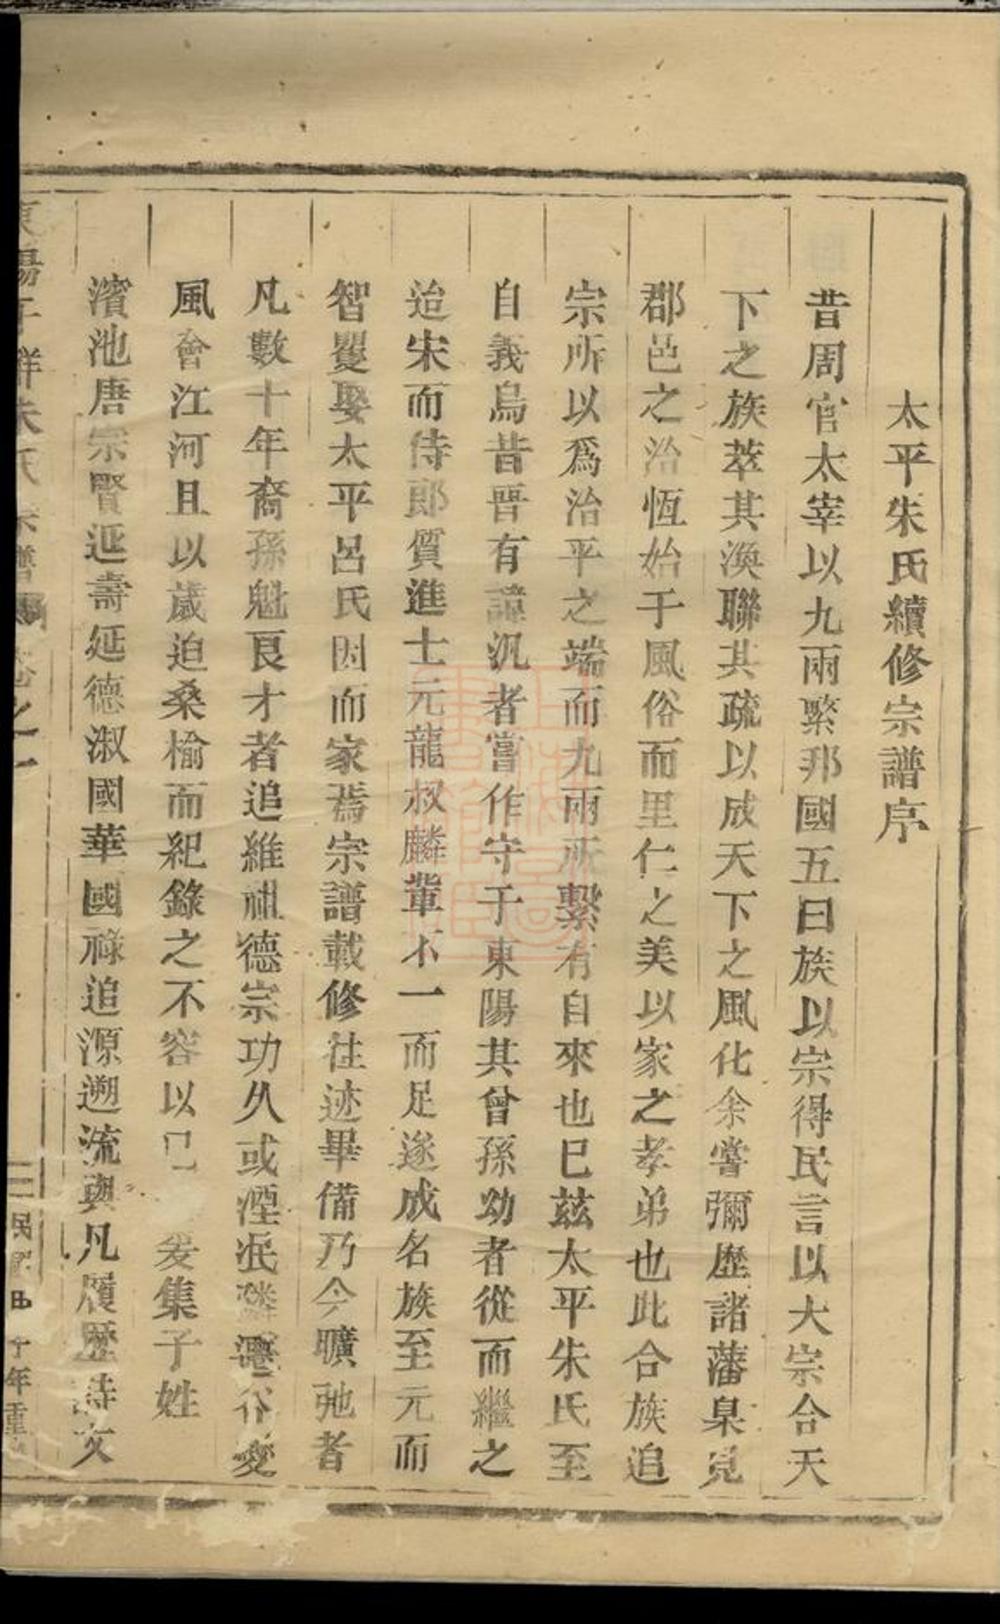 太平朱氏續修宗譜序
昔周官太宰以九兩繫邦國五曰族以宗得民言以大宗合天
下之族萃其渙聯其疏以成天下之風化余嘗彌歷諸藩臬見
郡邑之治恆始于風俗而里仁之美以家之孝弟也此合族追
宗所以爲治平之端而九兩所繫有自來也已兹太平朱氏至
自義烏昔晋有諱汎者嘗作守于東陽其曾孫幼者從而繼之
迨宋而侍郎質進士元龍叔麟輩不一而足遂成名族至元而
智矍娶太平呂氏因而家焉宗譜載修往述畢備乃今曠弛者
凡數十年裔孫魁艮才者追維祖德宗功久或湮泯遷谷變
風會江河且以歲迫桑榆而紀錄之不容以已爰集子姓
濱池唐宗賢延壽延德淑國華國祿追源遡流與凡履歷詩文
東陽千祥朱氏宗譜 卷之一
民 年重